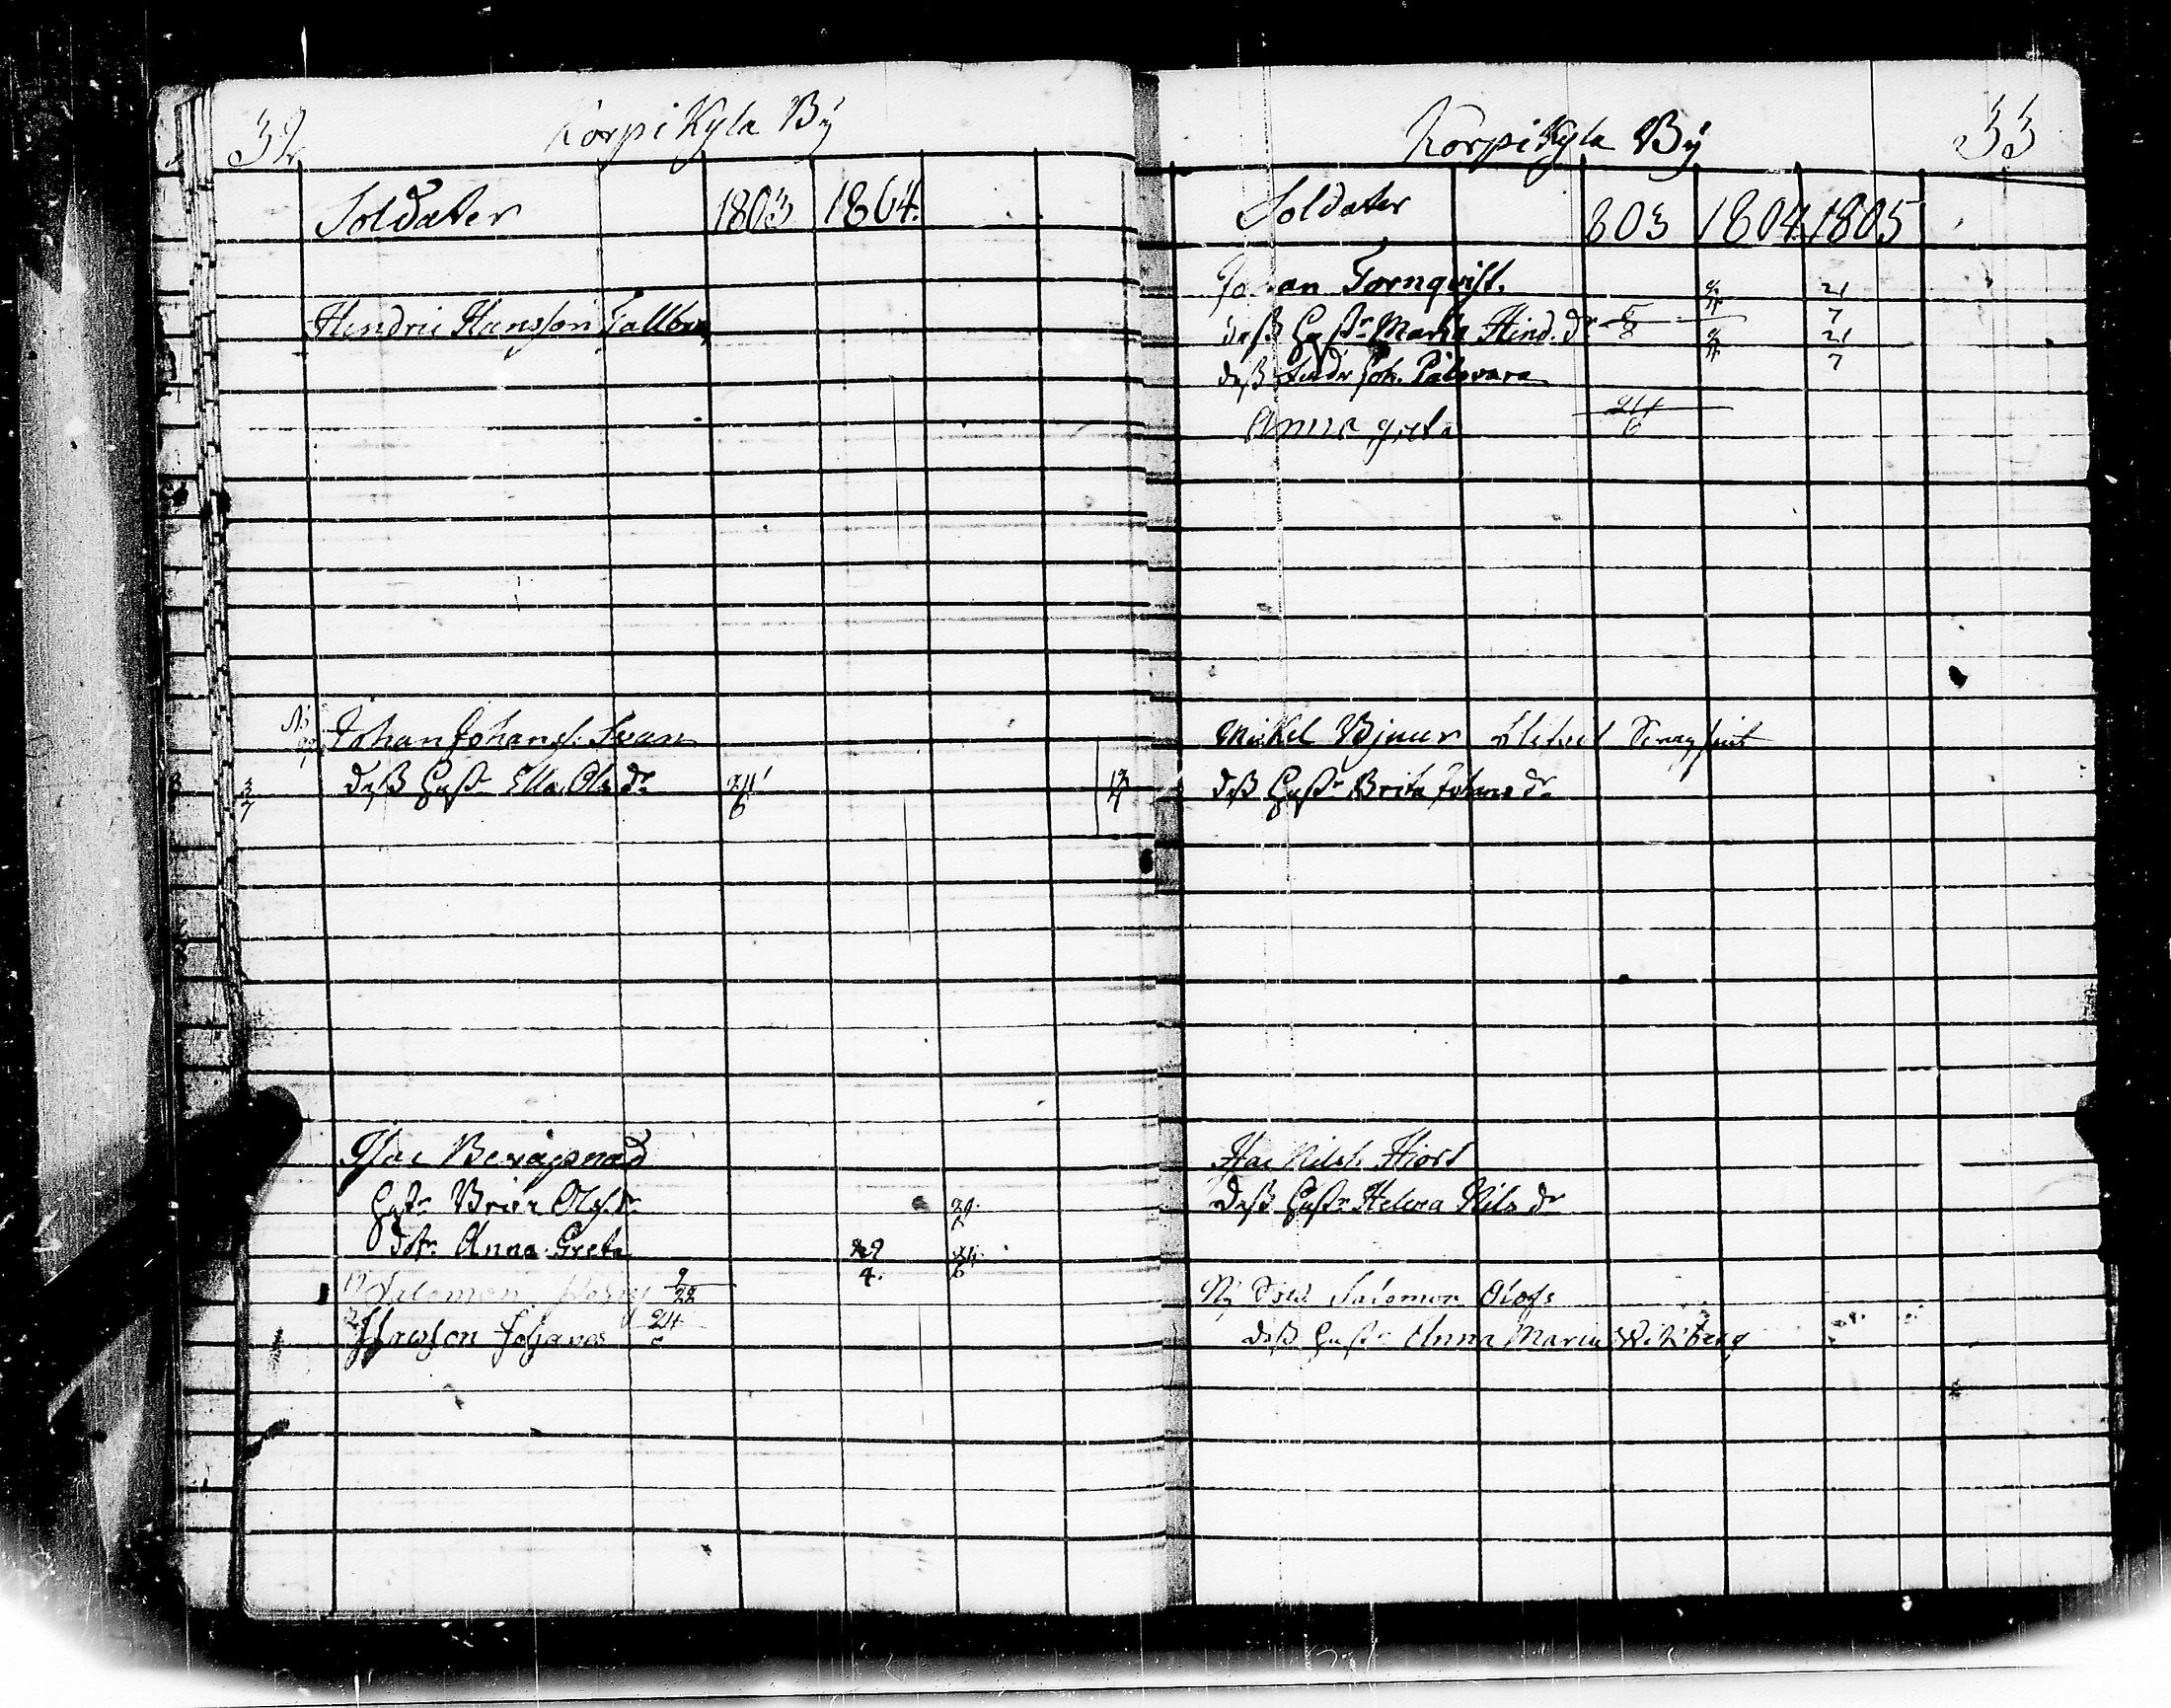 32
Korpikyla Bÿ
Soldater 1803 1804.
Hendric Hansson Tallberg
Johan Johans. Svan
deß Hustr Ella Ols dr 24/6
3/7
Isac
Hustr Brita Olofs dr
dotr Anna Greta 22/4. 24/6
Salomon 9/28
Johannes 24/6
Korpikyla Bÿ
33
Soldater 803 1804 1805
Johan Tornqvist. 21/7
deß Hustr Maria Hind. dr 21/7
deß Joh. Palovara
Anna Greta 24/6
Mickel Bjnur
deß Hustr Brita Johans dr
Isac Nils. Hiort
Deß Hustr Helena Nils dr
Nÿ Sold. Salomon Olofs
deß Hustr Anna Maria Wikberg